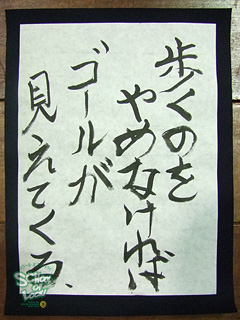 歩くのを
やめなければ
ゴールが
見えてくる、
SCHOOL
OF
LOCK!